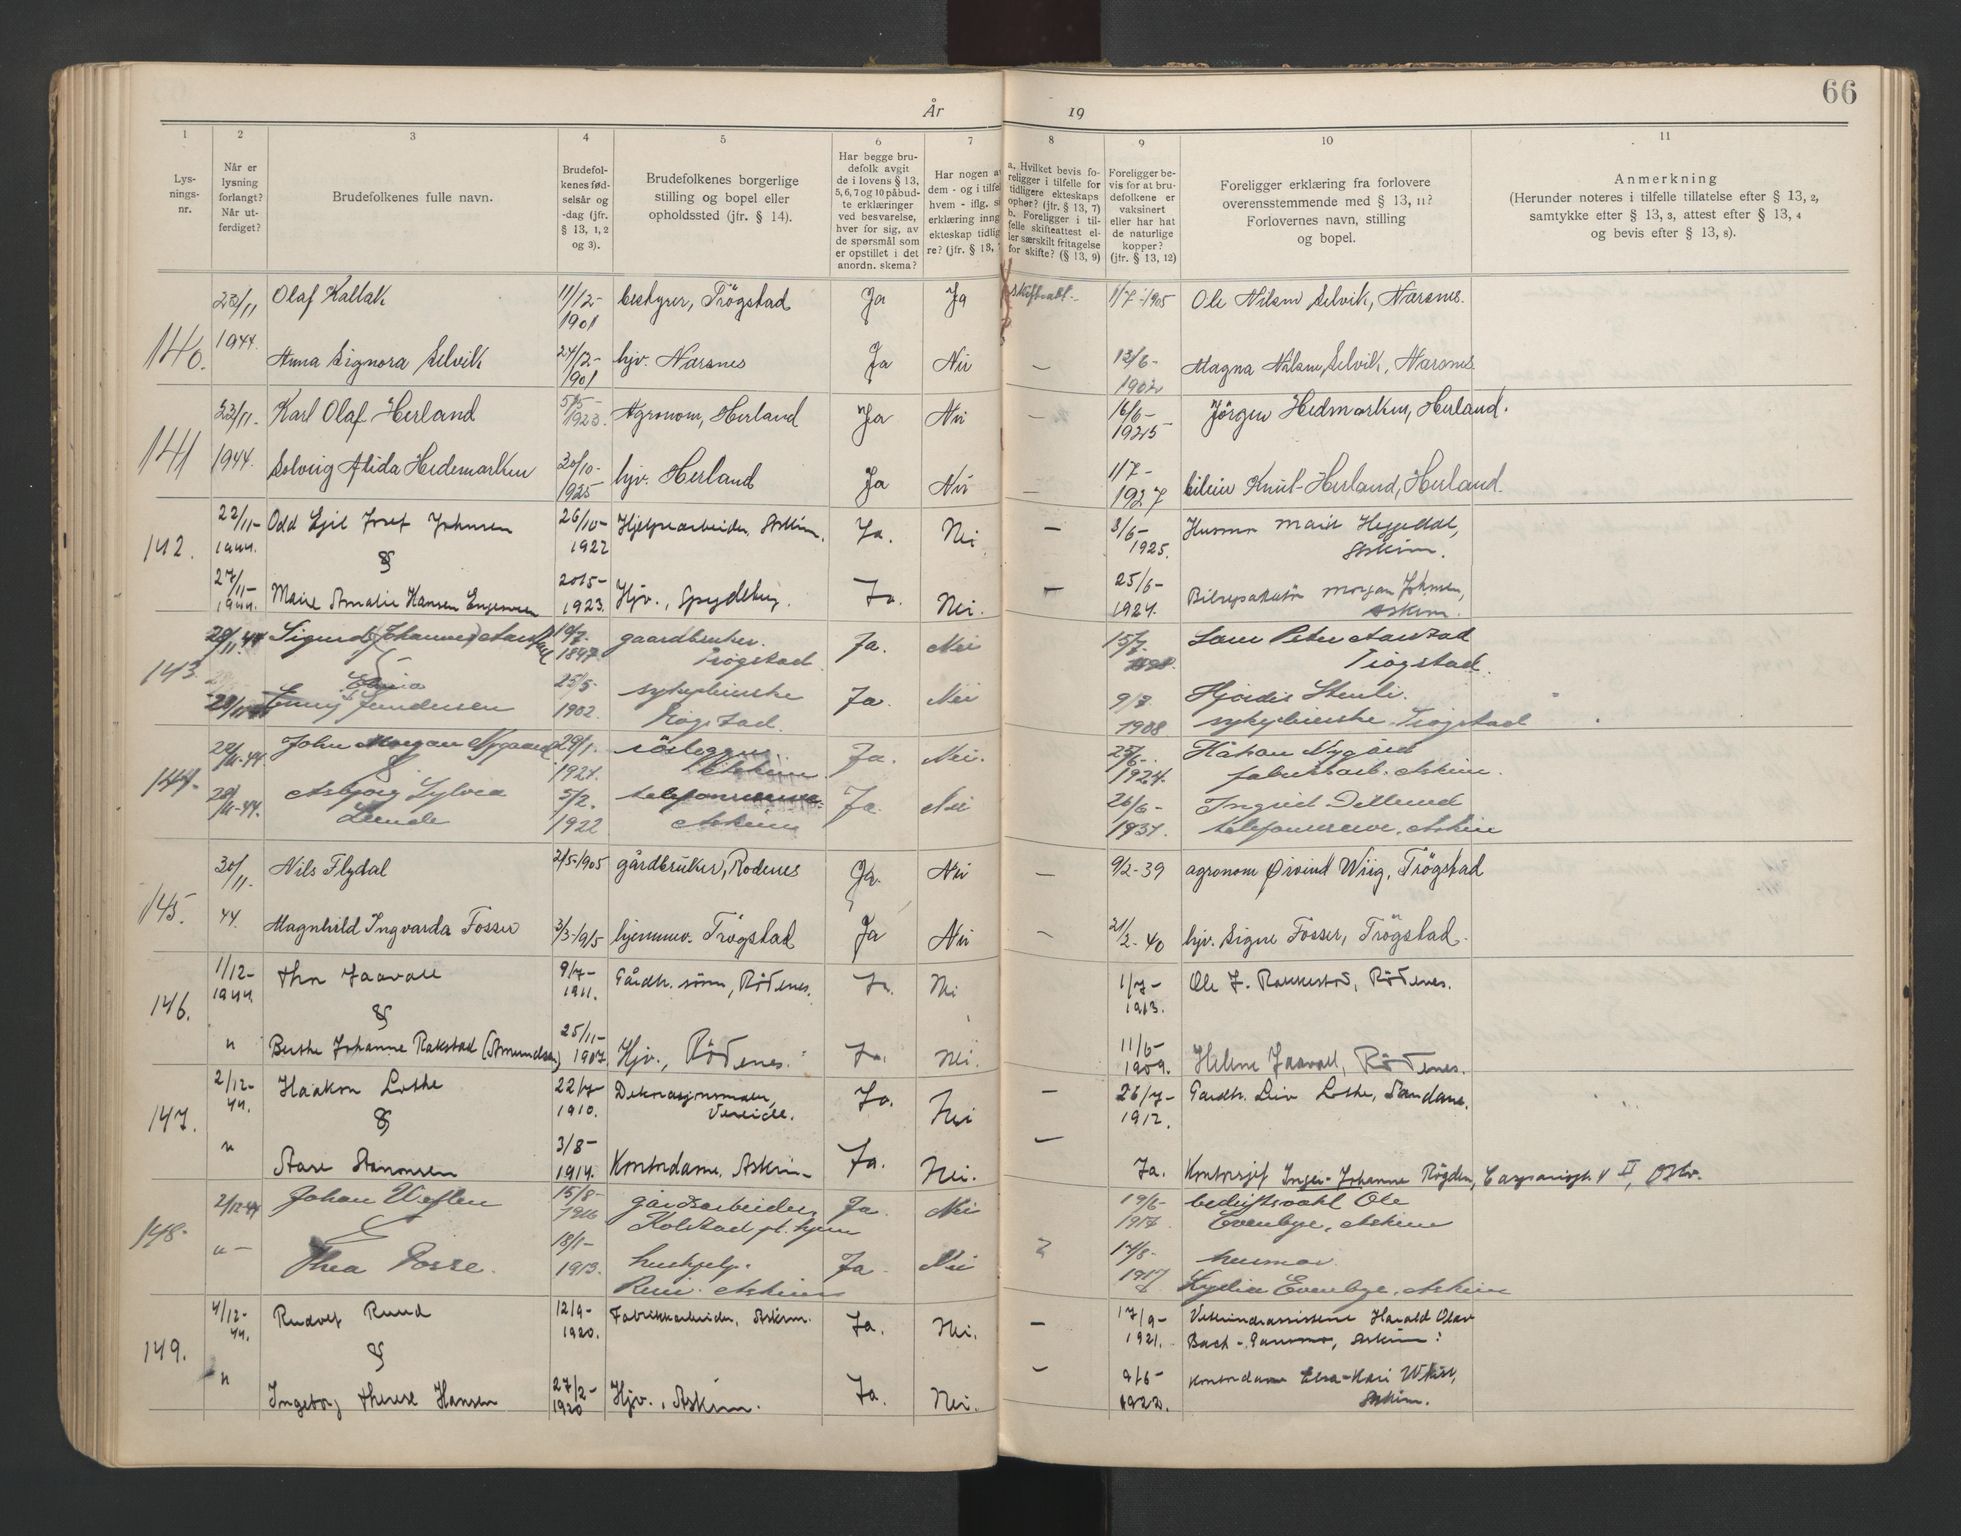 66
År 19
1 2 3 4 5 6 7 8 9 10 11
Lys-
nings-
nr.
Når er
lysning
forlangt?
Når ut-
ferdiget?
Brudefolkenes fulle navn.
Brudefol-
kenes fød-
selsår og
-dag (jfr.
§ 13, 1, 2
og 3).
Brudefolkenes borgerlige
stilling og bopel eller
opholdssted (jfr. § 14).
Har begge bru-
defolk avgit
de i lovens § 13,
5, 6, 7 og 10 påbud-
te erklæringer
ved besvarelse,
hver for sig, av
de spørsmål som
er opstillet i det
anordn. skema?
Har nogen av
dem - og i tilfel
hvem - iflg. s
erklæring inng
ekteskap tidlig
re? (jfr. § 13, 7
a. Hvilket bevis fo-
religger i tilfelle for
tidligere ekteskaps
ophør? (§ 13, 7)
b. Foreligger i til-
felle skifteattest el-
ler særskilt fritagelse
for skifte? (§ 13, 9)
Foreligger be-
vis for at bru-
defolkene er
vaksinert
eller har hat
de naturlige
kopper?
(jfr. § 13, 12)
Foreligger erklæring fra forlovere
overensstemmende med § 13, 11?
Forlovernes navn, stilling
og bopel.
Anmerkning
(Herunder noteres i tilfelle tillatelse efter § 13, 2,
samtykke efter § 13, 3, attest efter § 13, 4
og bevis efter § 13, 8).
140. 23/11 1944. Olaf Kallak 11/12-1901 bestyrer, Trøgstad Ja Ja 1/7-1905 Ole Nilsen Selvik, Narsnes.
Anna Signora Selvik 24/12-1901 hjv. Narsnes Ja Nei — 13/6-1902 Magna Nilsen Selvik, Narsnes.
141 23/11- 1944. Karl Olaf Herland 5/5-1923. Agronom, Herland Ja Nei — 16/6-1925 Jörgen Hedmarken, Herland.
Solveig Alida Hedemarken 20/10-1925 hjv. Herland Ja Nei — 1/7-1927 Knut Herland, Herland.
142. 22/11-1944. Odd Egil Josef Johnsen 26/10-1922 Hjelpearbeider, Askim. Ja. Nei — 3/6-1925. Husmor Marit Heggedal,
Askim.
&
27/11-1944. Marie Amalie Hansen Engesveen 20/5-1923. Hjv., Spydeberg. Ja. Nei. — 25/6-1924. Bilreparatør Morgan Johnsen,
Askim.
143. 28/11.44 Sigurd (Johannes) Aarstad 1897. gaardbruker. Ja. Nei 15/7- Lars Peter Aarstad
Trøgstad Trøgstad.
&
28/11 Jenny Gundersen 25/5-1902. sykepleierske Ja. Nei 9/7 1908 Hjördis Stenli.
Trøgstad sykepleierske Trøgstad
144. 28/11-44. John Morgan Nygaard 29/1. 1921. rörlegger. Ja. Nei. 25/6. 1924. Håkan Nygård
Askim fabrikkarb. Askim.
&
28/11-44. Asbjörg Sylvia 5/2. 1922 Ja Nei 26/6- 1937. Ingrid Dillerud
Lunde Askim telefonistinne, Askim
145. 30/11- 44. Nils Flydal 2/5-1905 gårdbruker, Rødenes Ja. Nei — 9/2-39 agronom Øivind Wiig, Trøgstad
Magnhild Ingvarda Fosser 3/3-1915 hjemmev. Trøgstad Ja Nei — 21/2-40 hjv. Signe Fosser, Trøgstad.
146. 1/12-1944. Thor Jaavall 9/7-1911. Gårdbr. sønn, Rødenes. Ja. Nei 1/7-1913. Ole J. Rakkestad, Rødenes.
&
" Berthe Johanne Rakstad (Amundsen) 25/11-1907. Hjv., Rødenes. Ja. Nei. 11/6-1909. Helene Jaavall, Rødenes.
147. 2/12-44. Haakon Lothe 22/7-1910. Dekorasjonsmaler, Ja. Nei — 26/7-1912. Gardbr. Leiv Lothe, Sandane.
Vereide.
&
" Aase Aamonsen 3/8-1914. Kontordame, Askim— Ja. Nei. — Ja. Kontorsjef Inger-Johanne Røgden, Casparisgt. V II, Oslo.
148. 2/12-44 Johan Weflen 15/8-1916 gårdsarbeider Ja. Nei 19/6-1917. Ole
Kolstad pt. hjem Evenbye, Askim
&
" — Thea Posse. 18/1-1913. hushjelp. Ja. Nei 17/8-1917 husmor
Askim Lydia Evenbye, Askim
149. 4/12-44. Rudolf Rund 12/9-1920. Fabrikkarbeider, Askim. Ja. Nei. — 17/9-1921. Veterinærassistent Harald Olav
Bach-Gansmo, Askim.
&
" Ingeborg Therese Hansen 27/2-1920 Hjv., Askim. Ja. Nei. — 9/6-1922. Kontordame Elsa-Kari
Askim.